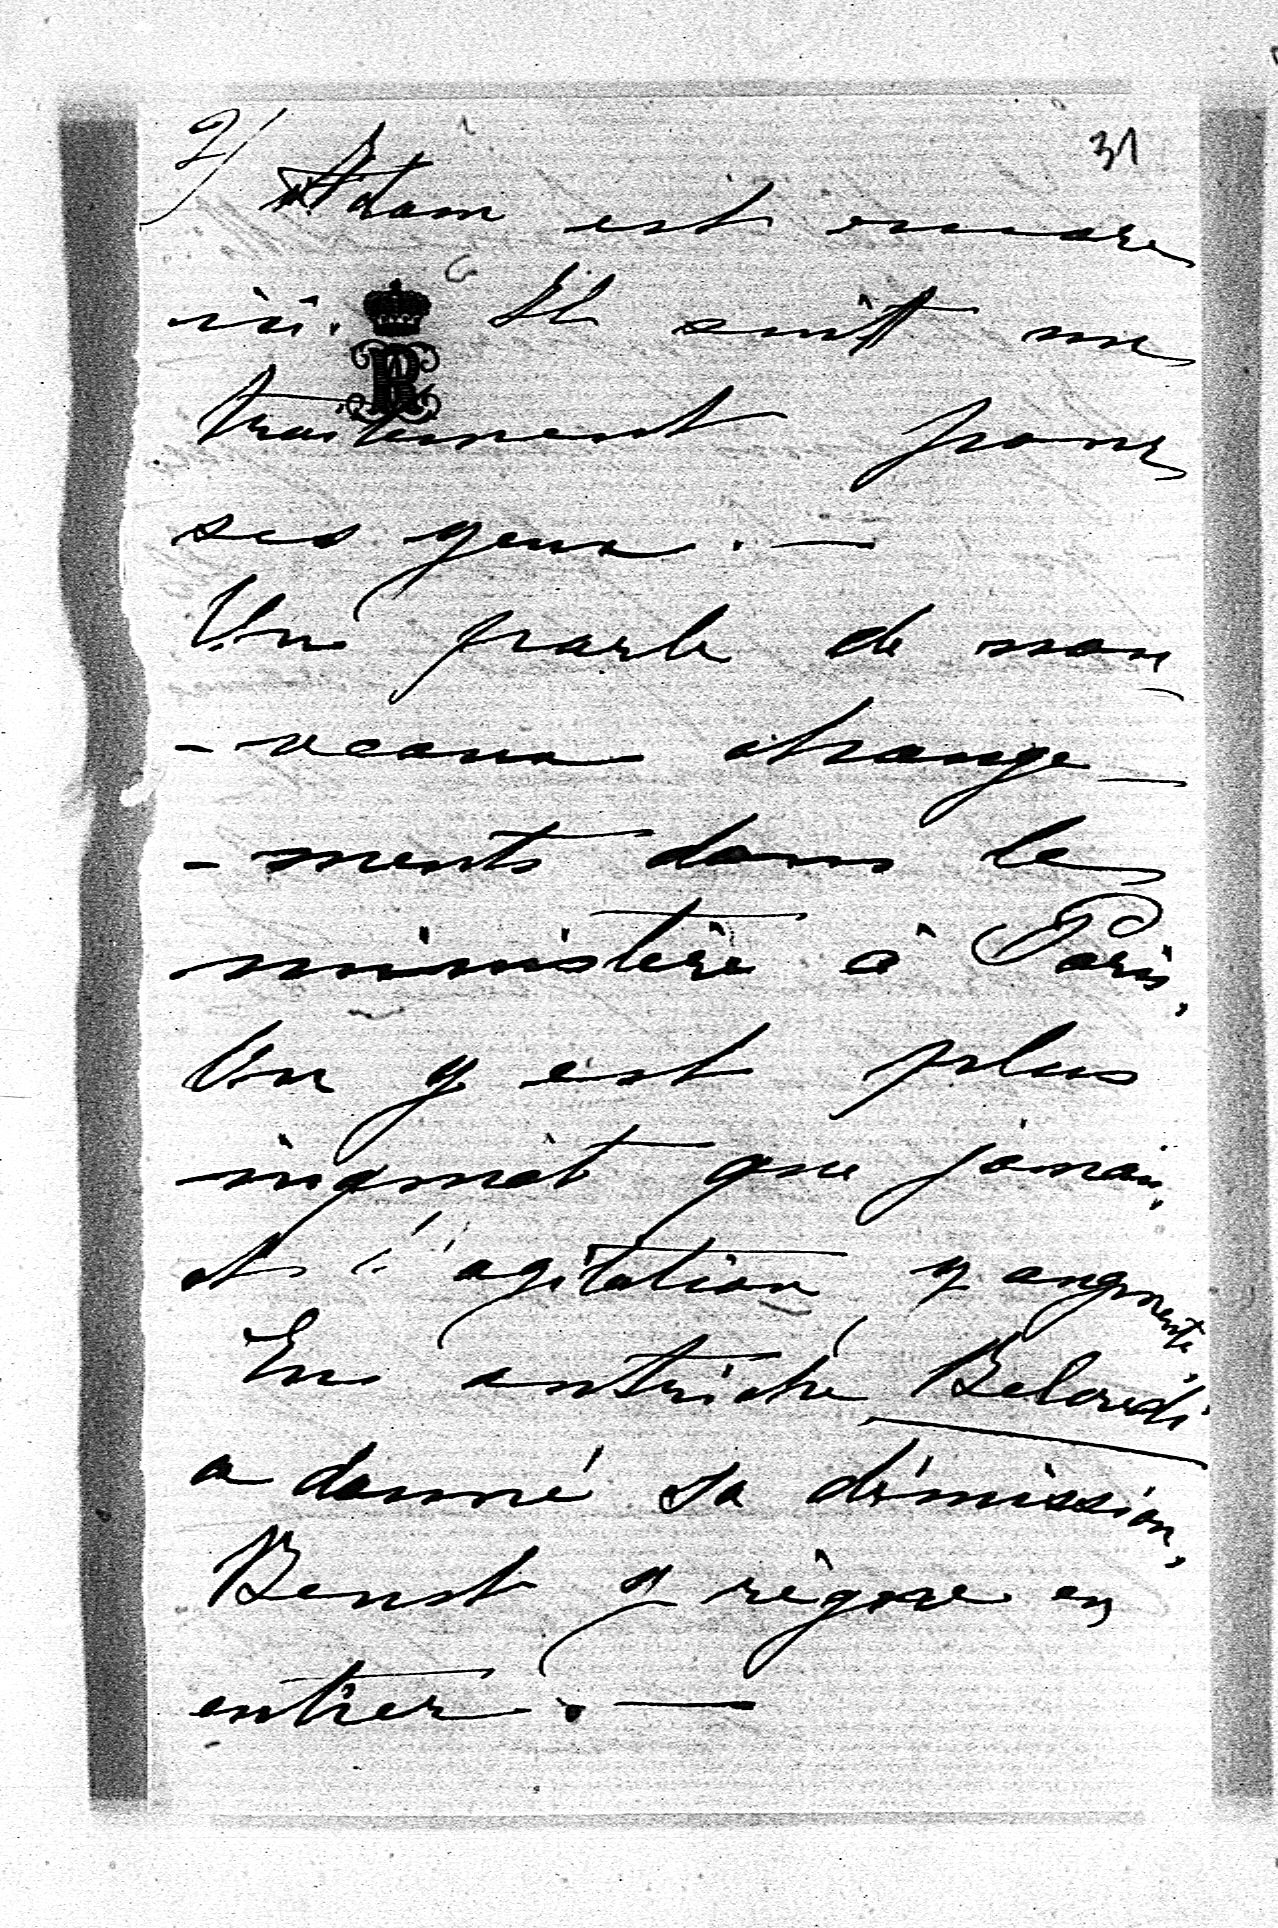 2/ 31
Adam est encore
ici. Il suit un
traitement pour
ses yeux. —
On parle de nou
-veaux change-
-ments dans le
ministère à Paris,
On y est plus
inquiet que jamais,
et l'agitation y augmente,
En autriche Belcredi
a donné sa démission,
Beust y règne en
entier. —